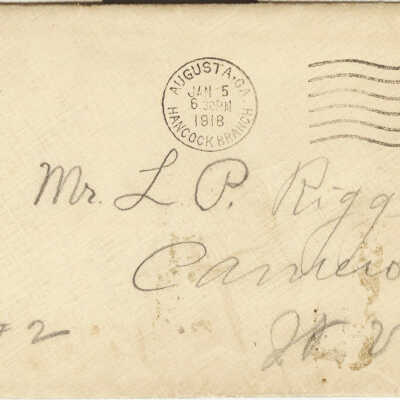 AUGUSTA, GA.
JAN 5
6 30PM
1918
HANCOCK BRANCH
Mr. L. P. Rigg
Camero
# 2
W. V